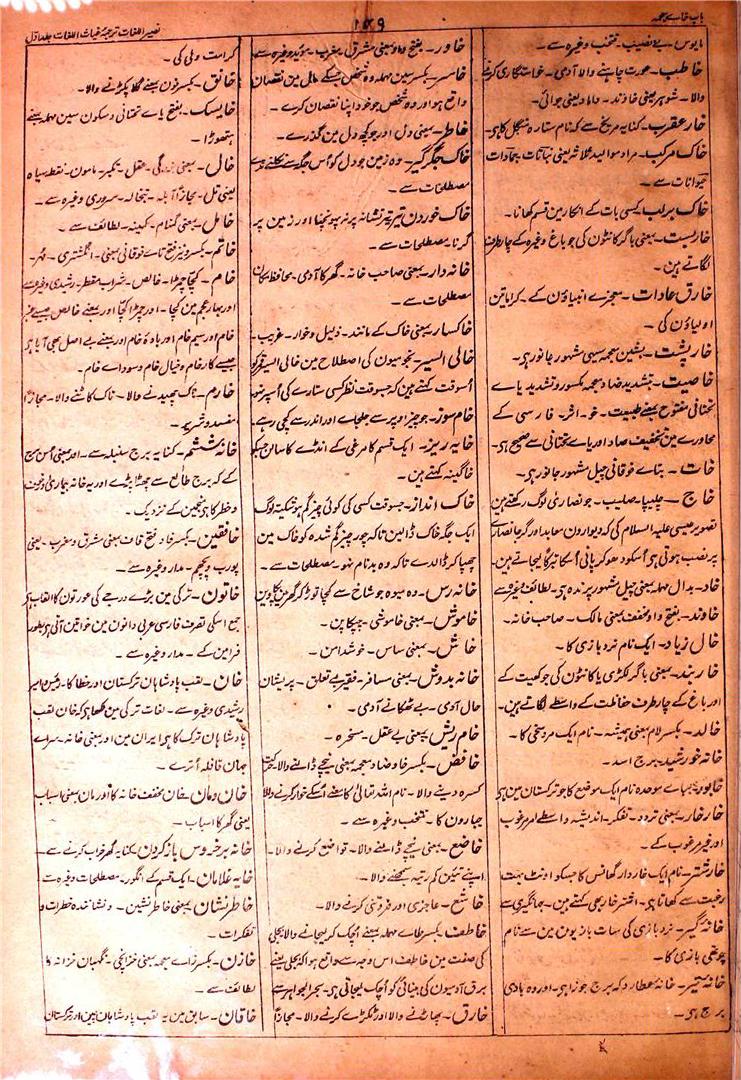 باب خاے معجمہ
۱۵۹
نصیر اللغات ترجمۂ غیاث اللغات جلد اول
مایوس۔ بے نصیب۔ منتخب وغیرہ سے۔
خاطب۔ عورت چاہنے والا آدمی۔ خواستگاری کرنے
والا۔ شوہر یعنی خاوند۔ داماد یعنی جوائی۔
خار عقرب۔ کنایہ مریخ سے کہ نام ستارہ منگل کا ہی۔
خاک مرکب۔ مراد موالید ثلاثہ یعنی نباتات جمادات
حیوانات سے۔
خاک برلب۔ کسی بات کے انکار مین قسم کھانا۔
خاربست۔ بمعنی باگر کانٹون کی جو باغ وغیرہ کے چارطرف
لگاتے ہین۔
خارق عادات۔ معجزے انبیاؤن کے۔ کراماتین
اولیاؤن کی۔
خارپشت۔ بشین معجمہ سیہی مشہور جانور ہی۔
خاصیت۔ بتشدید صاد مکسور و تشدید یاے
تحتانی مفتوح بمعنی طبیعت۔ خو۔ اثر۔ فارسی کے
محاورے مین تخفیف صاد اور یاے تحتانی سے صحیح ہی۔
خات۔ بتاے فوقانی چیل مشہور جانور ہی۔
خاج۔ چلیپا۔ صلیب۔ جو نصاری لوگ رکھتے ہین
تصویر عیسی علیہ السلام کی کہ دیوارون معابد اور گرجا نصاری
پر نصب ہوتی ہی اسکو دھوکر پانی اسکا تبرکا لیجاتے ہین۔
خاد۔ بدال مہملہ بمعنی چیل مشہور پرندہ ہی۔ لطائف وغیرہ سے
خاوند۔ بفتح واو مخفف بمعنی مالک۔ صاحب خانہ۔
خال زیاد۔ ایک نام نرد بازی کا۔
خاربند۔ بمعنی باگر لکڑی یا کانٹون کی جو کھیت کے
اور باغ کے چارطرف حفاظت کے واسطے لگاتے ہین۔
خالد۔ بکسر لام بمعنی ہمیشہ۔ نام ایک مرد سخی کا۔
خانہ خورشید۔ برج اسد۔
خابور۔ بباے موحدہ نام ایک موضع کا جو ترکستان مین ہی
خارخار۔ بمعنی تردد۔ تفکر۔ اندیشہ واسطے امر مرغوب
اور غیر مرغوب کے۔
خارشتر۔ نام ایک خاردار گھانس کا جسکو اونٹ بہت
رغبت سے کھاتا ہی۔ اشتر خار بھی کہتے ہین۔ جہانگیری سے
خانہ گیر۔ نرد بازی کی سات بازیون مین سے نام
چوتھی بازی کا۔
خانہ شیر۔ خانہ عطارد کہ برج جوزا ہی۔ اور وہ بادی
برج ہی۔
خاور۔ بفتح واو بمعنی مشرق۔ مغرب۔ موید وغیرہ سے۔
خاسر۔ بکسر سین مہملہ وہ شخص جسکے مال مین نقصان
واقع ہو اور وہ شخص جو خود اپنا نقصان کرے۔
خاطر۔ بمعنی دل اور جو کچھ دل مین گذرے۔
خاک جگر گیر۔ وہ زمین جو دل کو اس جگہ سے نکلنے نہ دے
مصطلحات سے۔
خاک خوردن تیر۔ تیر نشانہ پر نہ پہونچنا اور زمین پر
گرنا۔ مصطلحات سے۔
خانہ دار۔ بمعنی صاحب خانہ۔ گھر کا آدمی۔ محافظ مکان
مصطلحات سے۔
خاکسار۔ بمعنی خاک کے مانند۔ ذلیل و خوار۔ غریب۔
خالی السیر۔ نجومیون کی اصطلاح مین خالی السیر قمر کو
اسوقت کہتے ہین کہ جسوقت نظر کسی ستارے کی اسپر نہو
خام سوز۔ جو چیز اوپر سے جلجاے اور اندر سے کچی رہے۔
خایہ ریزہ۔ ایک قسم کا مرغی کے انڈے کا سالن جسکو
خاگینہ کہتے ہین۔
خاک انداز۔ جسوقت کسی کی کوئی چیز گم ہو شکیہ لوگ
ایک جگہ خاک ڈالین تاکہ چور چیز گم شدہ کو خاک مین
چھپا کر ڈالدے تاکہ وہ بدنام نہو۔ مصطلحات سے۔
خانہ رس۔ وہ میوہ جو شاخ سے کچا توڑ کر گھر مین پکاوین
خاموش۔ بمعنی خاموشی۔ چپکاپن۔
خاش۔ بمعنی ساس۔ خوشدامن۔
خانہ بدوش۔ بمعنی مسافر۔ فقیر بے تعلق۔ پریشان
حال آدمی۔ بے ٹھکانے آدمی۔
خام ریش۔ بمعنی بے عقل۔ مسخرہ۔
خافض۔ بکسر فا و ضاد معجمہ بمعنی نیچے ڈالنے والا۔ حرکت
کسرہ دینے والا۔ نام اللہ تعالی کا بمعنی خوار کرنے والا
جبارون کا۔ منتخب وغیرہ سے۔
خاضع۔ بمعنی نیچے ڈالنے والا۔ تواضع کرنے والا۔
اپنے تئین کم رتبہ سمجھنے والا۔
خاشع۔ عاجزی اور فروتنی کرنے والا۔
خاطف۔ بکسر طاے مہملہ بمعنی اچک کر لیجانے والا۔ بجلی
کی صفت مین خاطف اس وجہ سے واقع ہوا کہ بجلی یعنے
برق آدمیون کی بینائی کو اچک لیجاتی ہی۔ بحر الجواہر سے
خارق۔ پھاڑنے والا اور ٹکڑے کرنے والا۔ مجازاً
کرامت ولی کی۔
خانق۔ بکسر نون بمعنی گلا پکڑنے والا۔
خایسک۔ بفتح یاے تحتانی و سکون سین مہملہ بمعنے
ہتھوڑا۔
خال۔ بمعنی زندگی۔ عقل۔ تکبر۔ مامون۔ نقطہ سیاہ
یعنی تل۔ مجازاً آبلہ۔ تبخالہ۔ سروری وغیرہ سے۔
خامل۔ بمعنی گمنام۔ کمینہ۔ لطائف سے۔
خاتم۔ بکسر و نیز فتح تاے فوقانی بمعنی۔ انگشتری۔ مہر۔
خام۔ کچا چمڑا۔ خالص۔ شراب مقطر۔ رشیدی وغیرہ سے
اور بہار عجم مین کچا۔ اور چمڑا کچا اور بمعنے خالص جیسے عنبر
خام اور سیم خام اور بادۂ خام اور بمعنے بے اصل بھی آیا ہی
جیسے کار خام و خیال خام و سوداے خام۔
خارم۔ ناک چھیدنے والا۔ ناک کاٹنے والا۔ مجازاً
مفسد و شریر۔
خانہ ششم۔ کنایہ برج سنبلہ سے۔ اور بمعنی اس برج
کے کہ برج طالع سے چھٹا پڑے اور یہ خانہ بیماری و خوف
و خطر کا ہی منجمین کے نزدیک۔
خافقین۔ بکسر فا و فتح قاف بمعنی مشرق و مغرب۔ یعنی
پورب و پچھم۔ مدار وغیرہ سے۔
خاتون۔ ترکی مین بڑے درجے کی عورتون کا القاب ہی
جمع اسکی تصرف فارسی عربی دانون مین خواتین آئی ہی بطور
فرامین کے۔ مدار وغیرہ سے۔
خان۔ لقب بادشاہان ترکستان اور خطا کا۔ رئیس و امیر
رشیدی وغیرہ سے۔ لغات ترکی مین لکھا ہی کہ خان لقب
پادشاہان ترک کا ہی ایران مین اور بمعنی خانہ۔ سراے
جہان قافلہ اترے۔
خان و مان۔ خان مخفف خانہ کا اور مان بمعنی اسباب
یعنی گھر کا اسباب۔
خانہ برخروس بار کردن۔ کنایہ گھر خراب کرنے سے۔
خایہ غلامان۔ ایک قسم کے انگور۔ مصطلحات وغیرہ سے
خاطر نشان۔ بمعنی خاطر نشین۔ و نشانہ خطرات و
تفکرات۔
خازن۔ بکسر زاے معجمہ بمعنی خزانچی۔ نگہبان خزانہ کا
لطائف سے۔
خاقان۔ سابق مین یہ لقب پادشاہان چین اور ترکستان